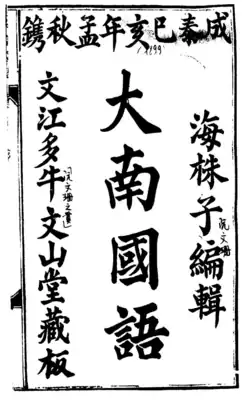 成泰巳亥年孟秋鐫
1899
海株子編輯
阮文珊
大南國語
文江多牛文山堂藏板
阮文珊之